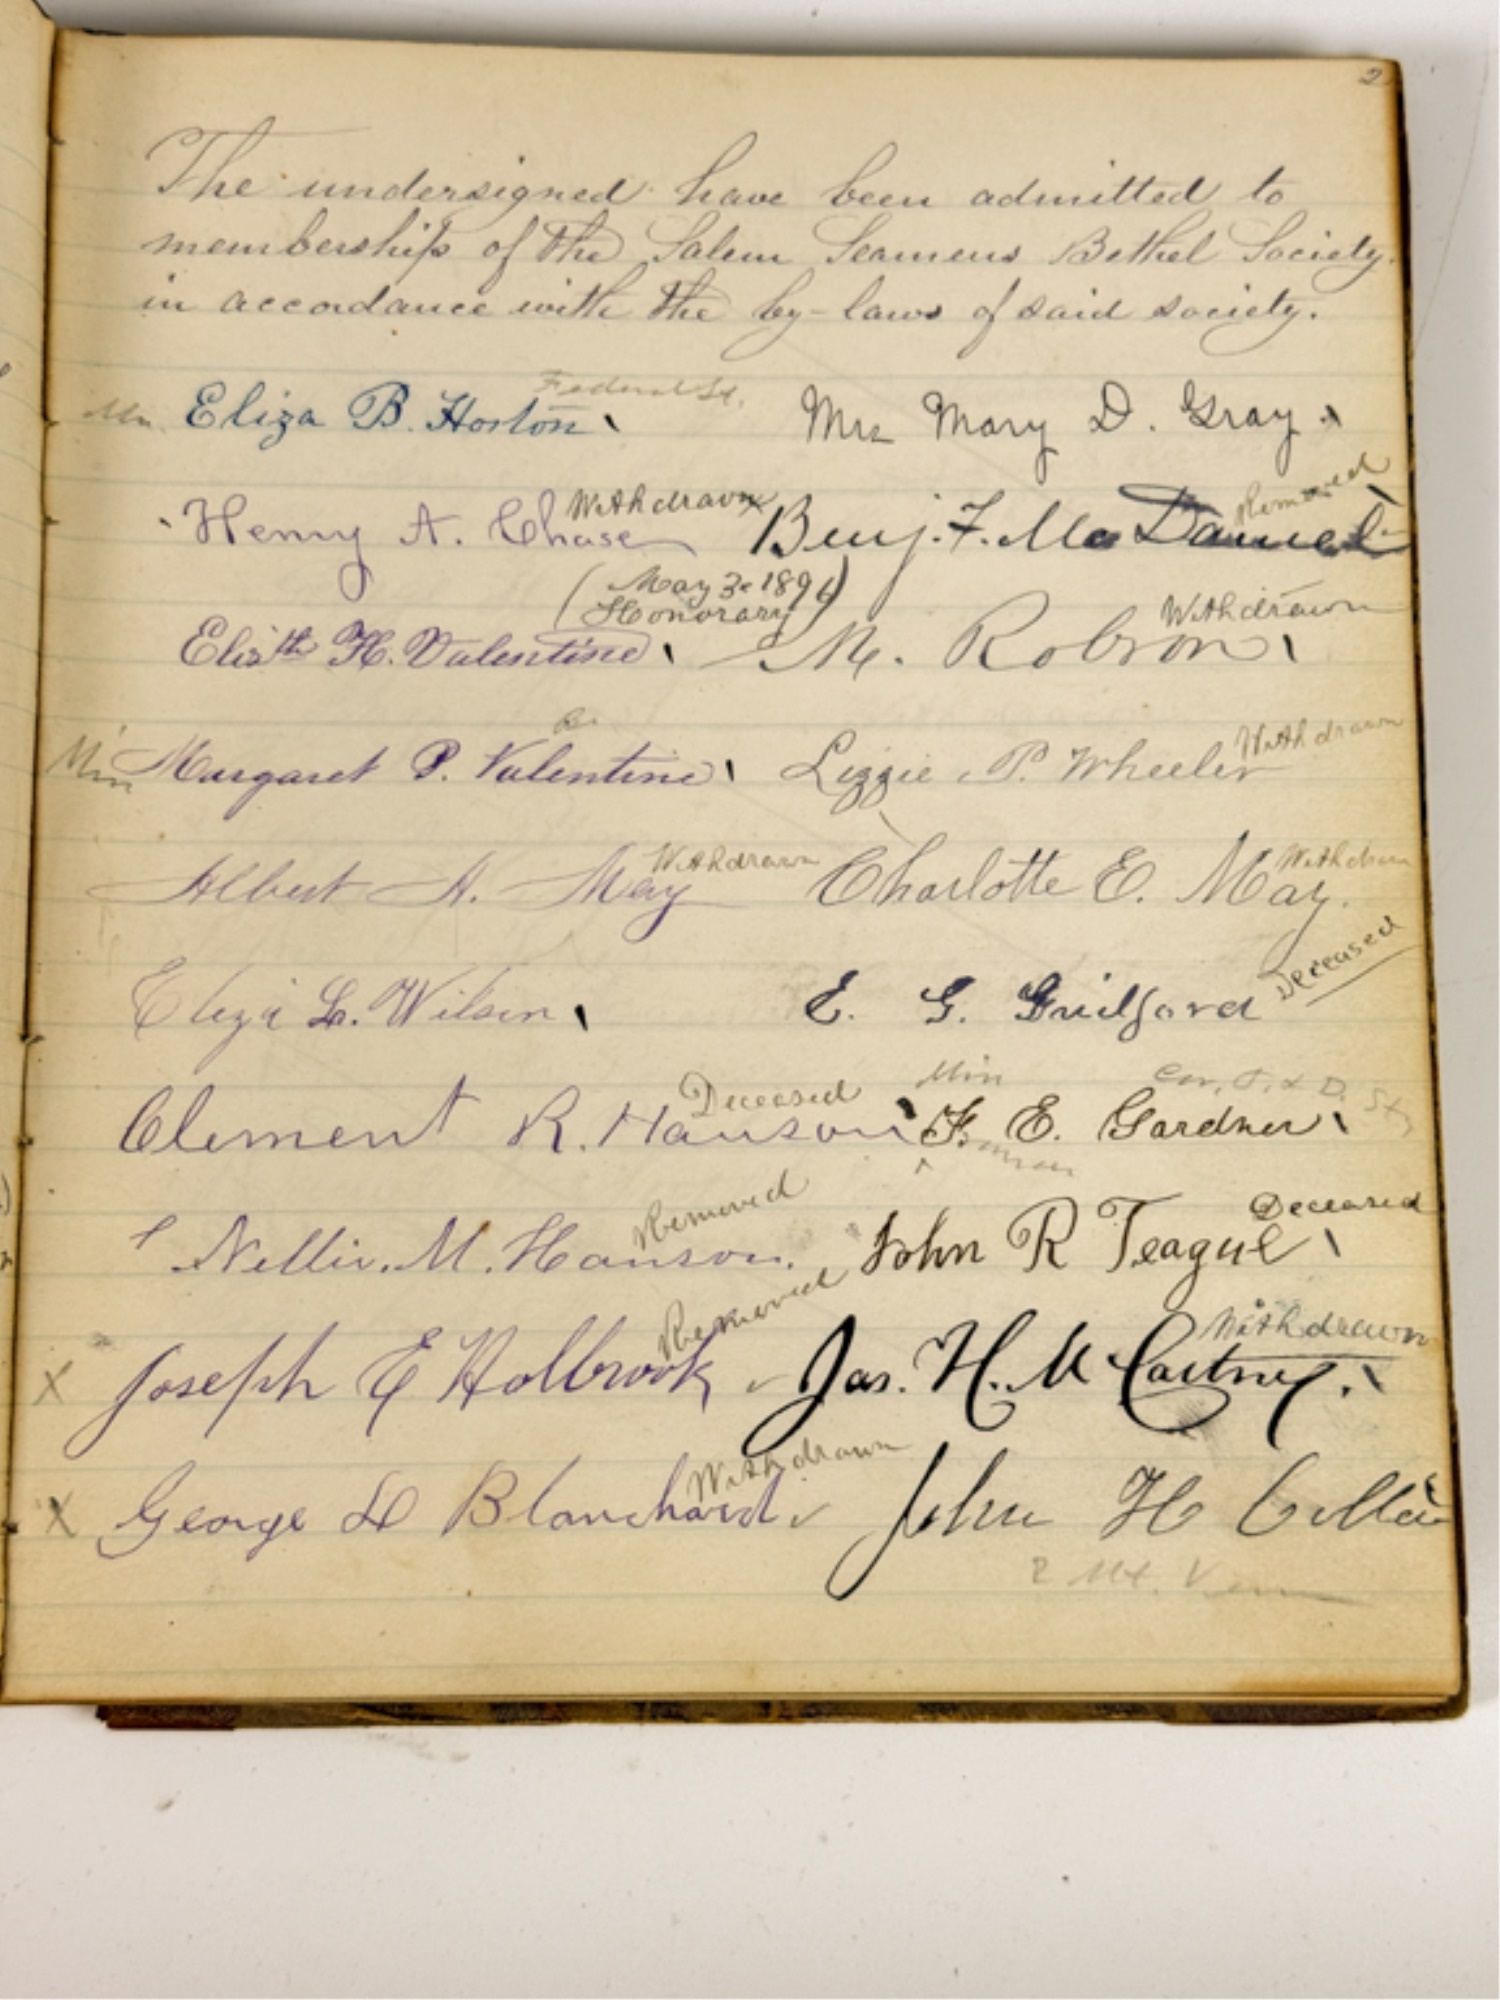 2
The undersigned have been admitted to
membership of the Salem Seamens Bethel Society
in accordance with the by-laws of said society.
Federal St.
Eliza B. Horton
Mrs Mary D. Gray
Withdrawn
Removed
Henry A. Chase
Benj. F. McDaniel
(May 3 1894)
Honorary
Withdrawn
Elisth H. Valentine
M. Robson
Withdrawn
Margaret P. Valentine
Lizzie P. Wheeler
Withdrawn
Withdrawn
Albert A. May
Charlotte E. May.
Deceased
Eliza L. Wilson
E. G. Guilford
Deceased
Min
Cor. & D. St
Clement R. Hanson
F. E. Gardner
Removed
Deceased
Nellie M. Hanson.
John R Teague
Removed
Withdrawn
X Joseph E Holbrook
Jas. H. McCartney.
Withdrawn
X George L Blanchard
John H
2 Mt.